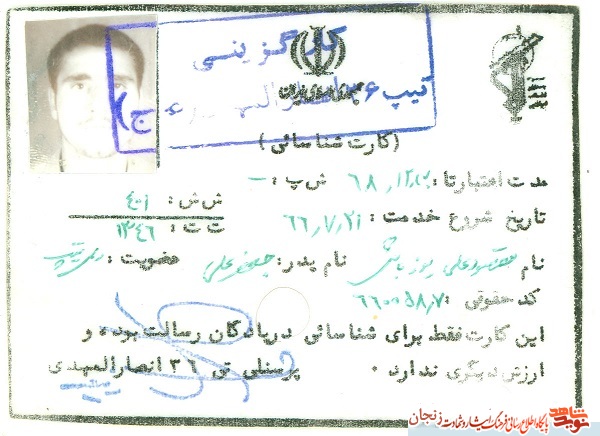 کارگزینی
تیپ
جمهوری اسلامی ایران
(کارت شناسائی)
مدت اعتبارتا: ش پ: -
ش ش: ۴۰۱
تاریخ شروع خدمت: ۶۶/۷/۲۱ ت ت: ۱۳۴۶
نام مقصودعلی یوزباشی نام پدر: جعفرعلی عضویت:
کد حقوقی:
این کارت فقط برای شناسائی در پادگان رسالت بوده و
ارزش دیگری ندارد. پرسنلی تی ۳۶ انصارالمهدی
نوید شاهد پایگاه اطلاع رسانی فرهنگ ایثار و شهادت زنجان